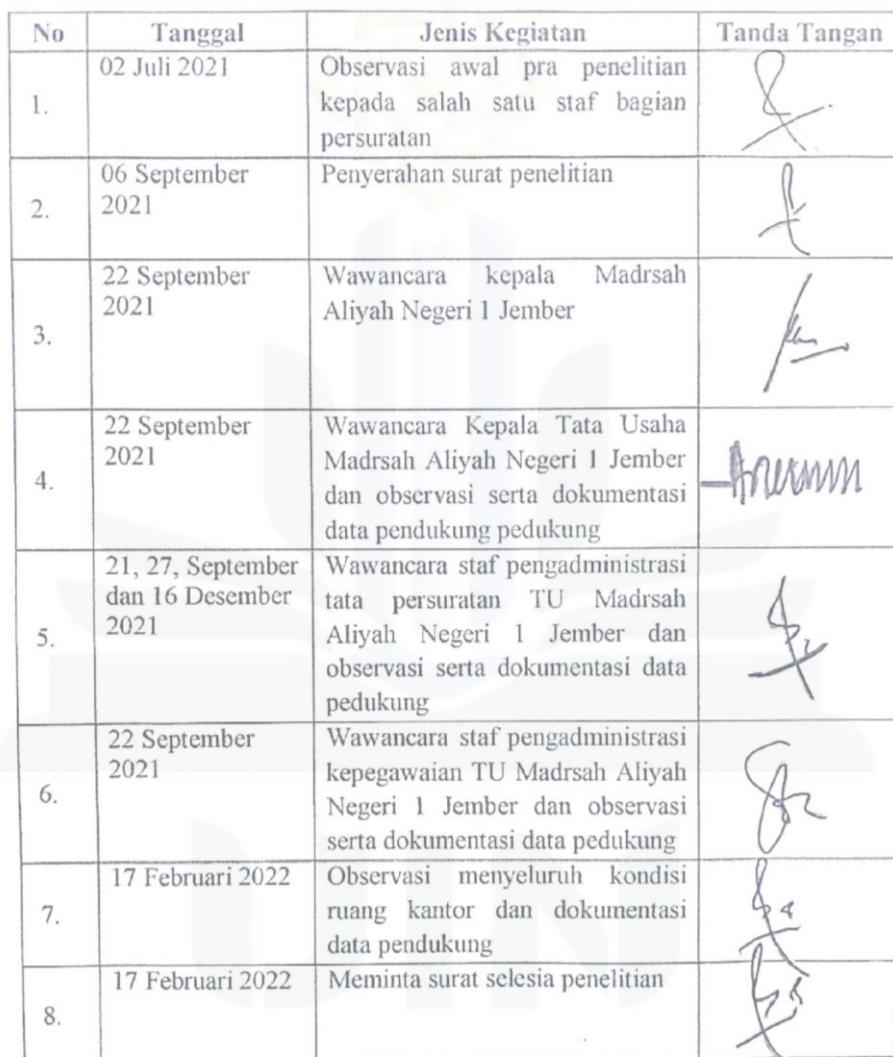 No Tanggal Jenis Kegiatan Tanda Tangan
1.
02 Juli 2021
Observasi awal pra penelitian
kepada salah satu staf bagian
persuratan
2.
06 September
2021
Penyerahan surat penelitian
3.
22 September
2021
Wawancara kepala Madrsah
Aliyah Negeri 1 Jember
4.
22 September
2021
Wawancara Kepala Tata Usaha
Madrsah Aliyah Negeri 1 Jember
dan observasi serta dokumentasi
data pendukung pedukung
5.
21, 27, September
dan 16 Desember
2021
Wawancara staf pengadministrasi
tata persuratan TU Madrsah
Aliyah Negeri 1 Jember dan
observasi serta dokumentasi data
pedukung
6.
22 September
2021
Wawancara staf pengadministrasi
kepegawaian TU Madrsah Aliyah
Negeri 1 Jember dan observasi
serta dokumentasi data pedukung
7.
17 Februari 2022
Observasi menyeluruh kondisi
ruang kantor dan dokumentasi
data pendukung
8.
17 Februari 2022
Meminta surat selesia penelitian